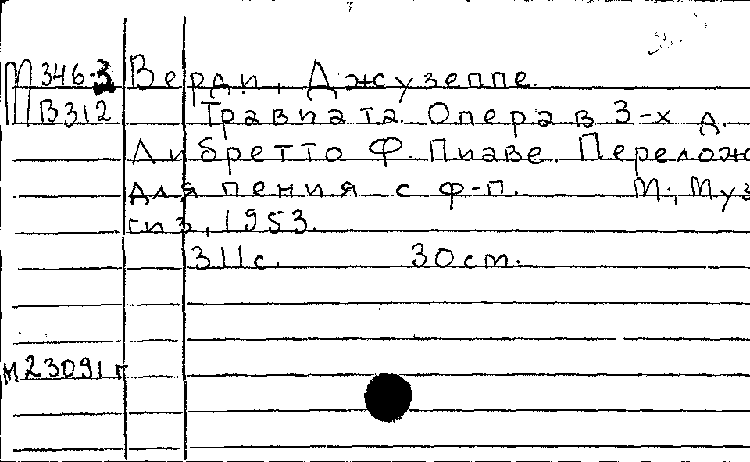 М346.3 Верди, Джузеппе.
В312 Травиата. Опера в 3-х д.
Либретто Ф. Пиаве. Перелож
для пения с ф-п. М., Муз
гиз, 1953.
311с. 30см.
М23091 г